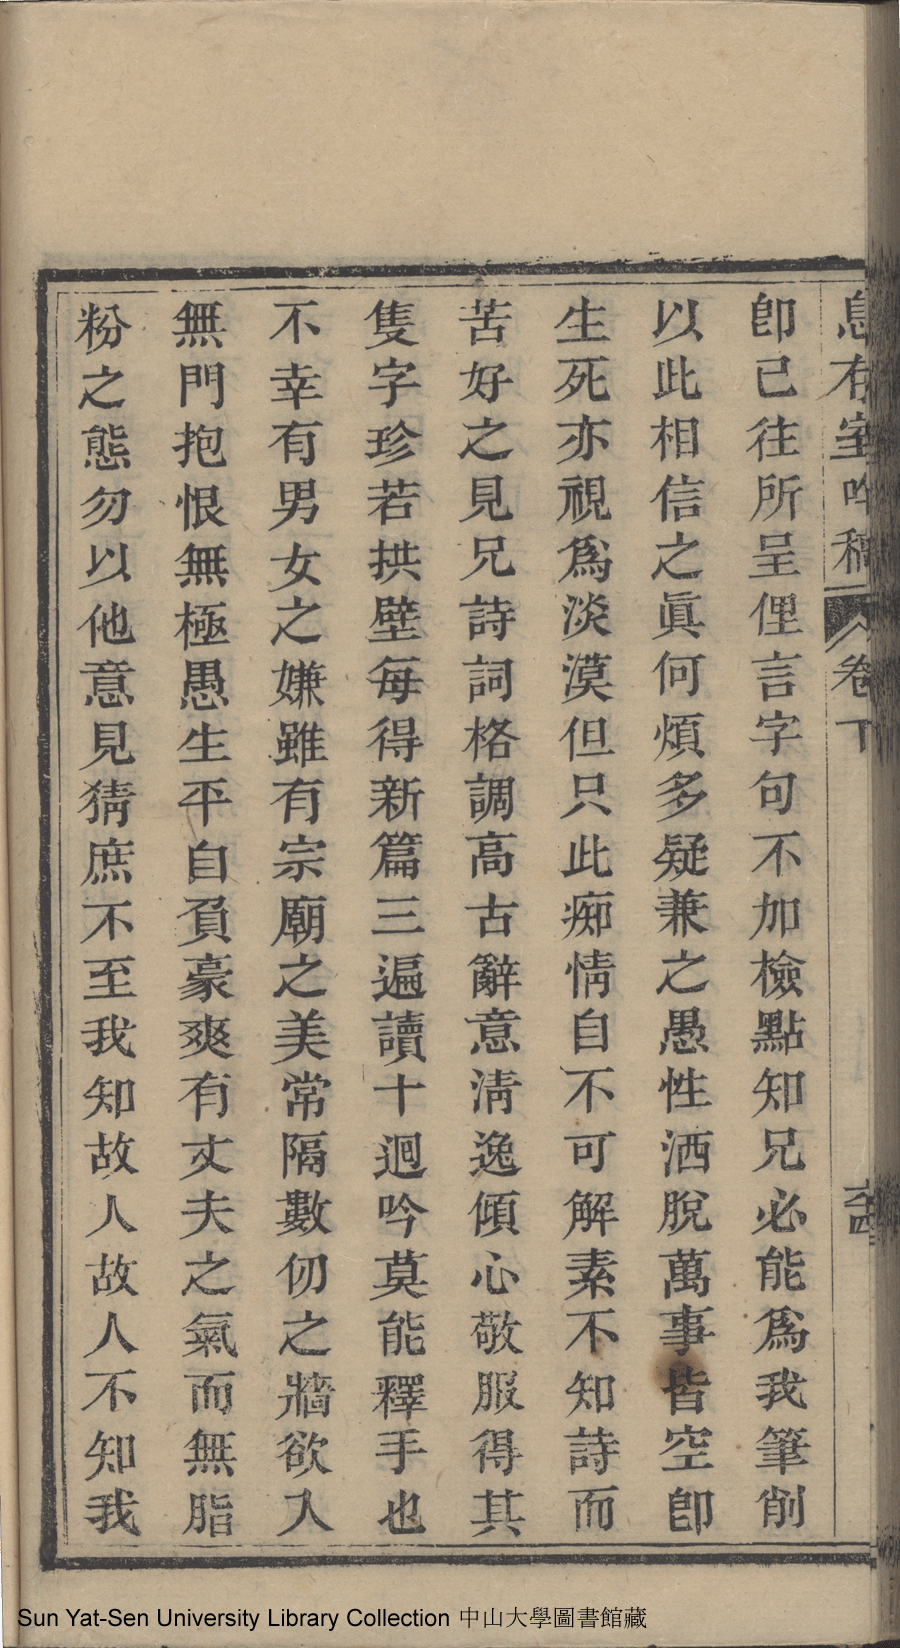 息有室吟稿 卷下
卽已往所呈俚言字句不加檢點知兄必能爲我筆削
以此相信之眞何煩多疑兼之愚性洒脫萬事皆空卽
生死亦視爲淡漠但只此痴情自不可解素不知詩而
苦好之見兄詩詞格調高古辭意淸逸傾心敬服得其
隻字珍若拱壁每得新篇三遍讀十迴吟莫能釋手也
不幸有男女之嫌雖有宗廟之美常隔數仞之牆欲入
無門抱恨無極愚生平自負豪爽有丈夫之氣而無脂
粉之態勿以他意見猜庶不至我知故人故人不知我
Sun Yat-Sen University Library Collection 中山大學圖書館藏